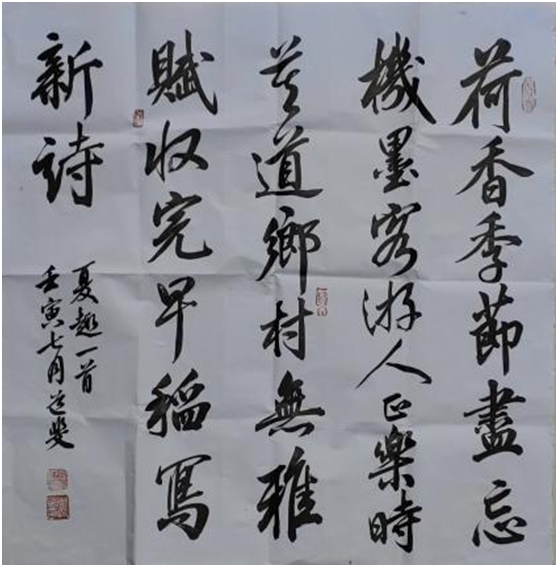 荷香季節盡忘
機墨客游人正樂時
莫道鄉村無雅
賦收完早稻寫
新詩
夏趣一首
壬寅七月道斐